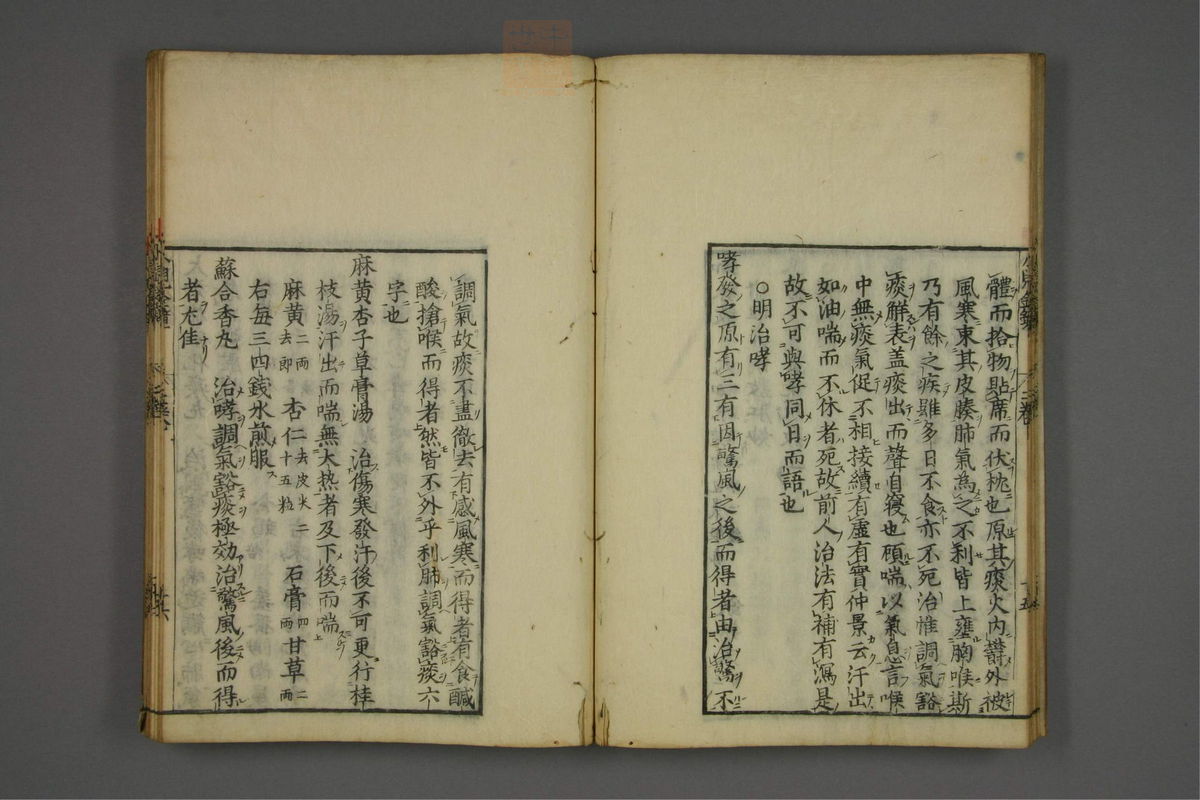 體而拾物點席而伏枕也原其痰火內欝外被
風寒束其皮腠肺氣為之不利皆上壅胸喉斯
乃有餘之疾雖多日不食亦不死治惟調氣豁
痰觧表盖痰出而聲自寝也頑喘以氣息言喉
中無痰氣促不相接續有虛有實仲景云汗出
如油喘而不休者死故前人治法有補有瀉是
故不可與哮同日而語也
○明治哮
哮發之原有三有因驚風之後而得者由治驚不
調氣故痰不盡徹去有感風寒而得者有食鹹
酸搶喉而得者然皆不外乎利肺調氣豁痰六
字也
麻黄杏子草膏湯 治傷寒發汗後不可更行桂
枝湯汗出而喘無大热者及下後而喘
麻黄二両去節 杏仁二去皮尖二十五粒 石膏四両 甘草二両
右每三四銭水煎服
蘇合香丸 治哮調氣豁痰極効治驚風後而得
者尤佳